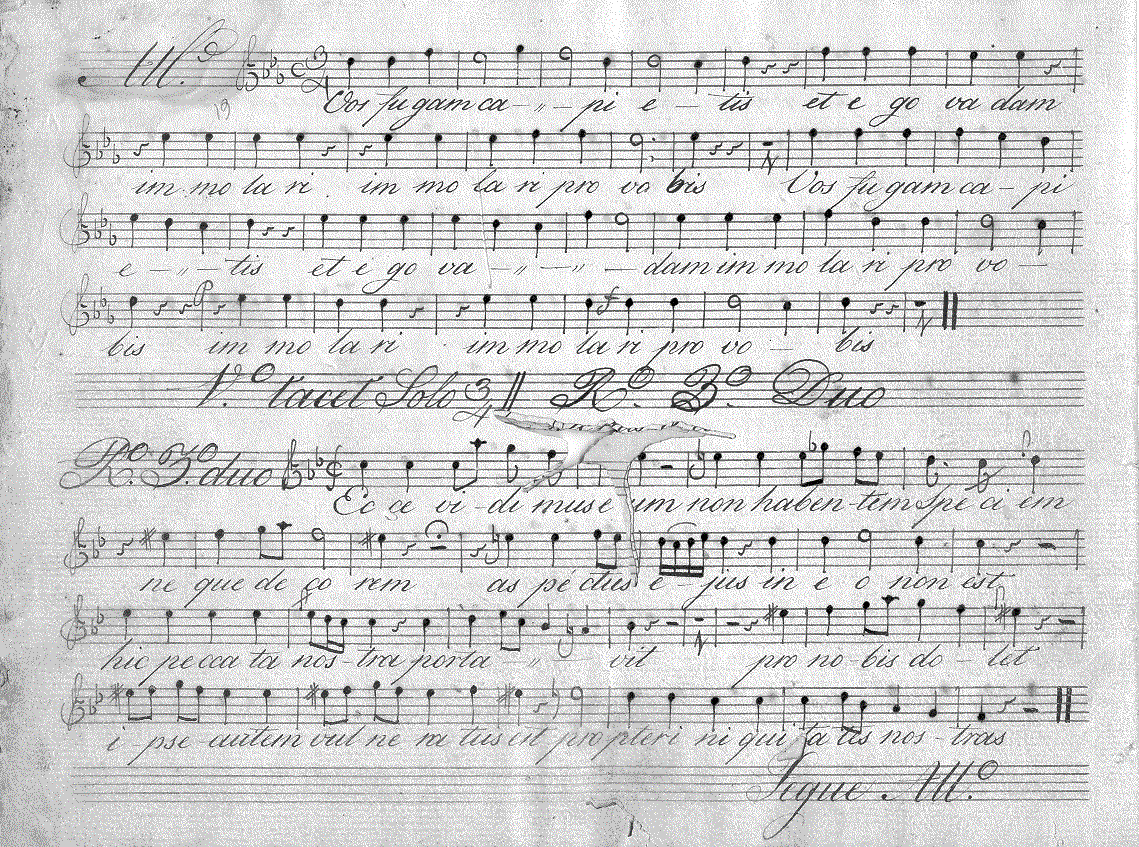 All.º
Vos fu gam ca - „ - pi e - tis et e go va dam
im mo la ri im mo la ri pro vo bis Vos fu gam ca - pi
e - „ - tis et e go va - „ - „ - dam im mo la ri pro vo -
bis im mo la ri im mo la ri pro vo - bis
V.º tacet Solo 3/4 || R.º 3.º Duo
R.º 3.º duo
Ec ce vi - di mus e um non haben - tem spe ci em
ne que de co rem as pé ctus e jus in e o non est
hic pec ca ta nos - tra porta - „ - vit pro no - bis do - let
i - pse autem vul ne ra tus est propter i ni qui ta tis nos - tras
Segue All.º